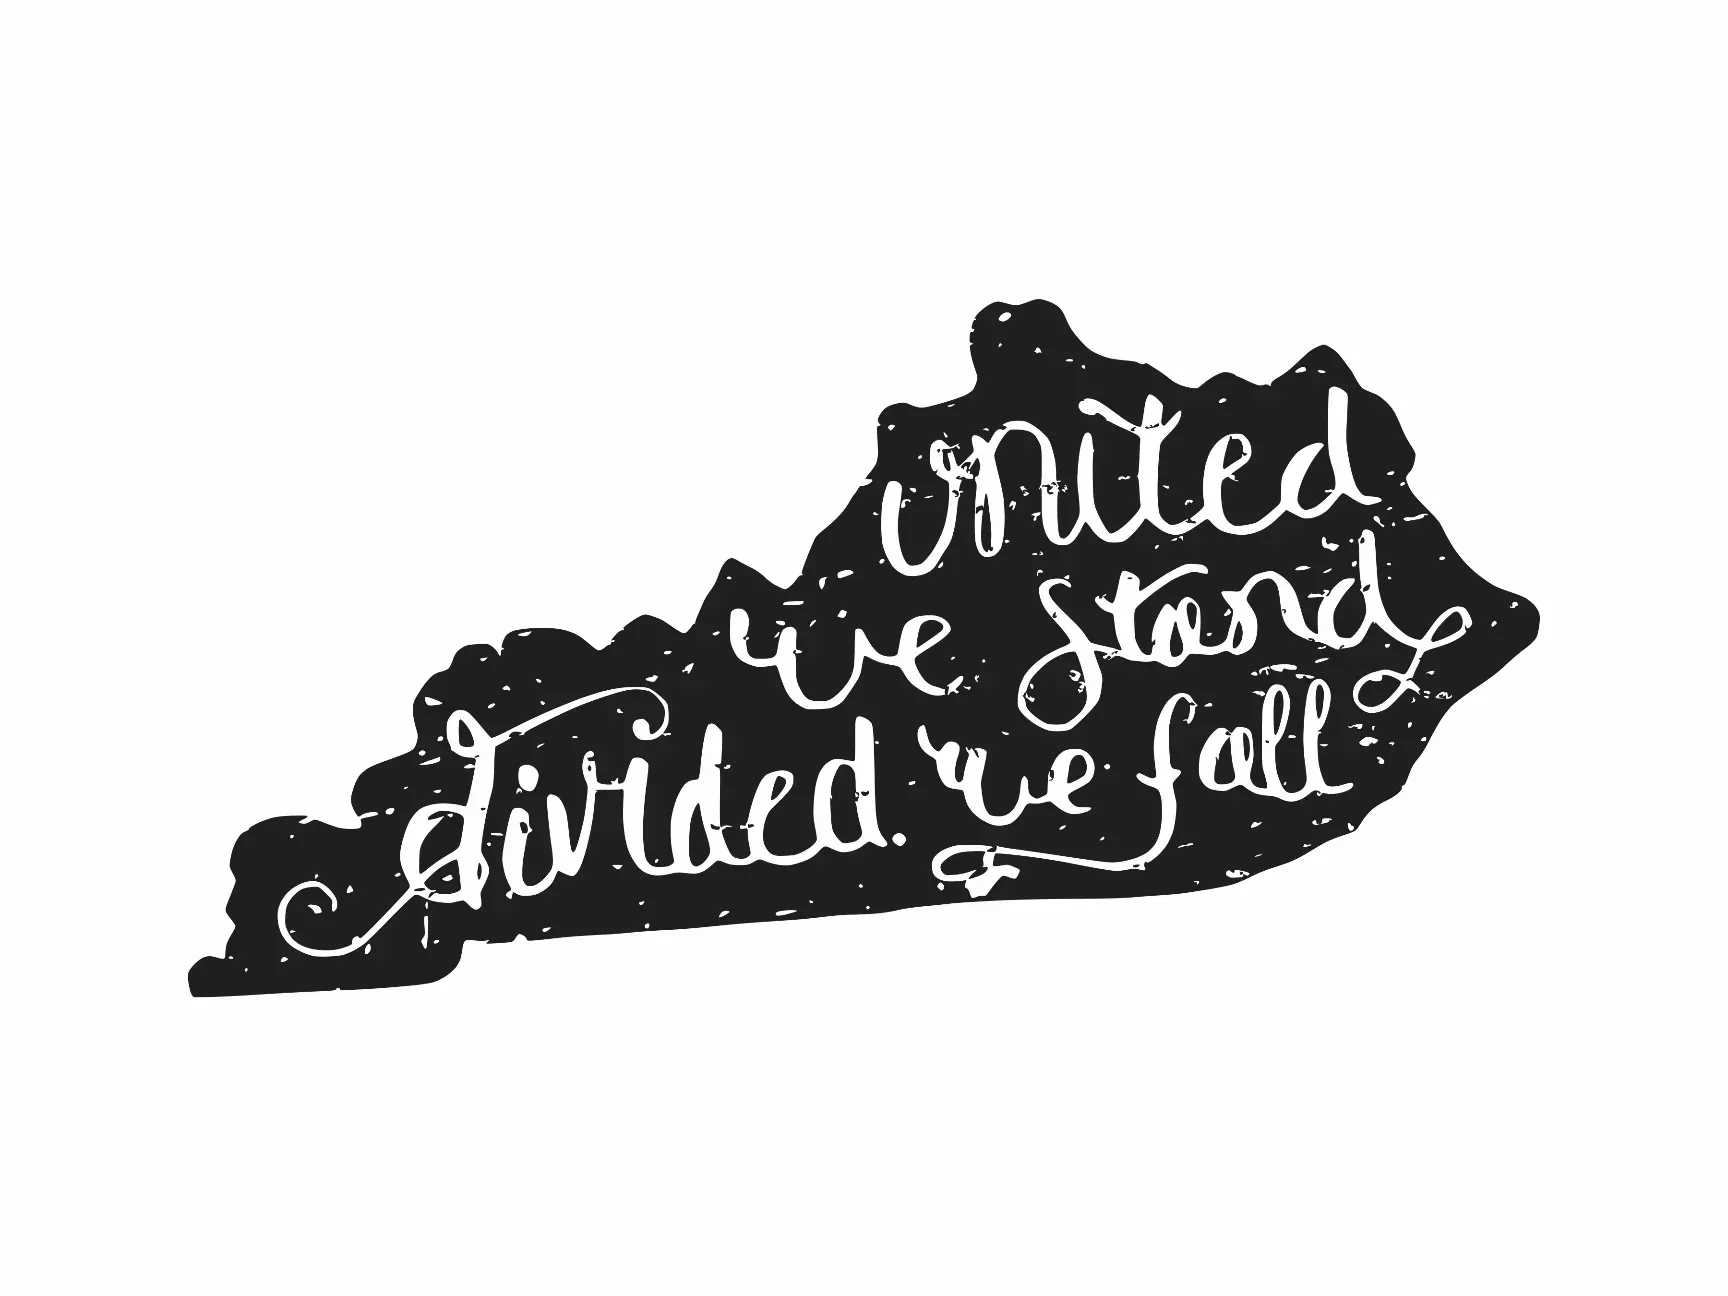 united
we stand
divided. we fall